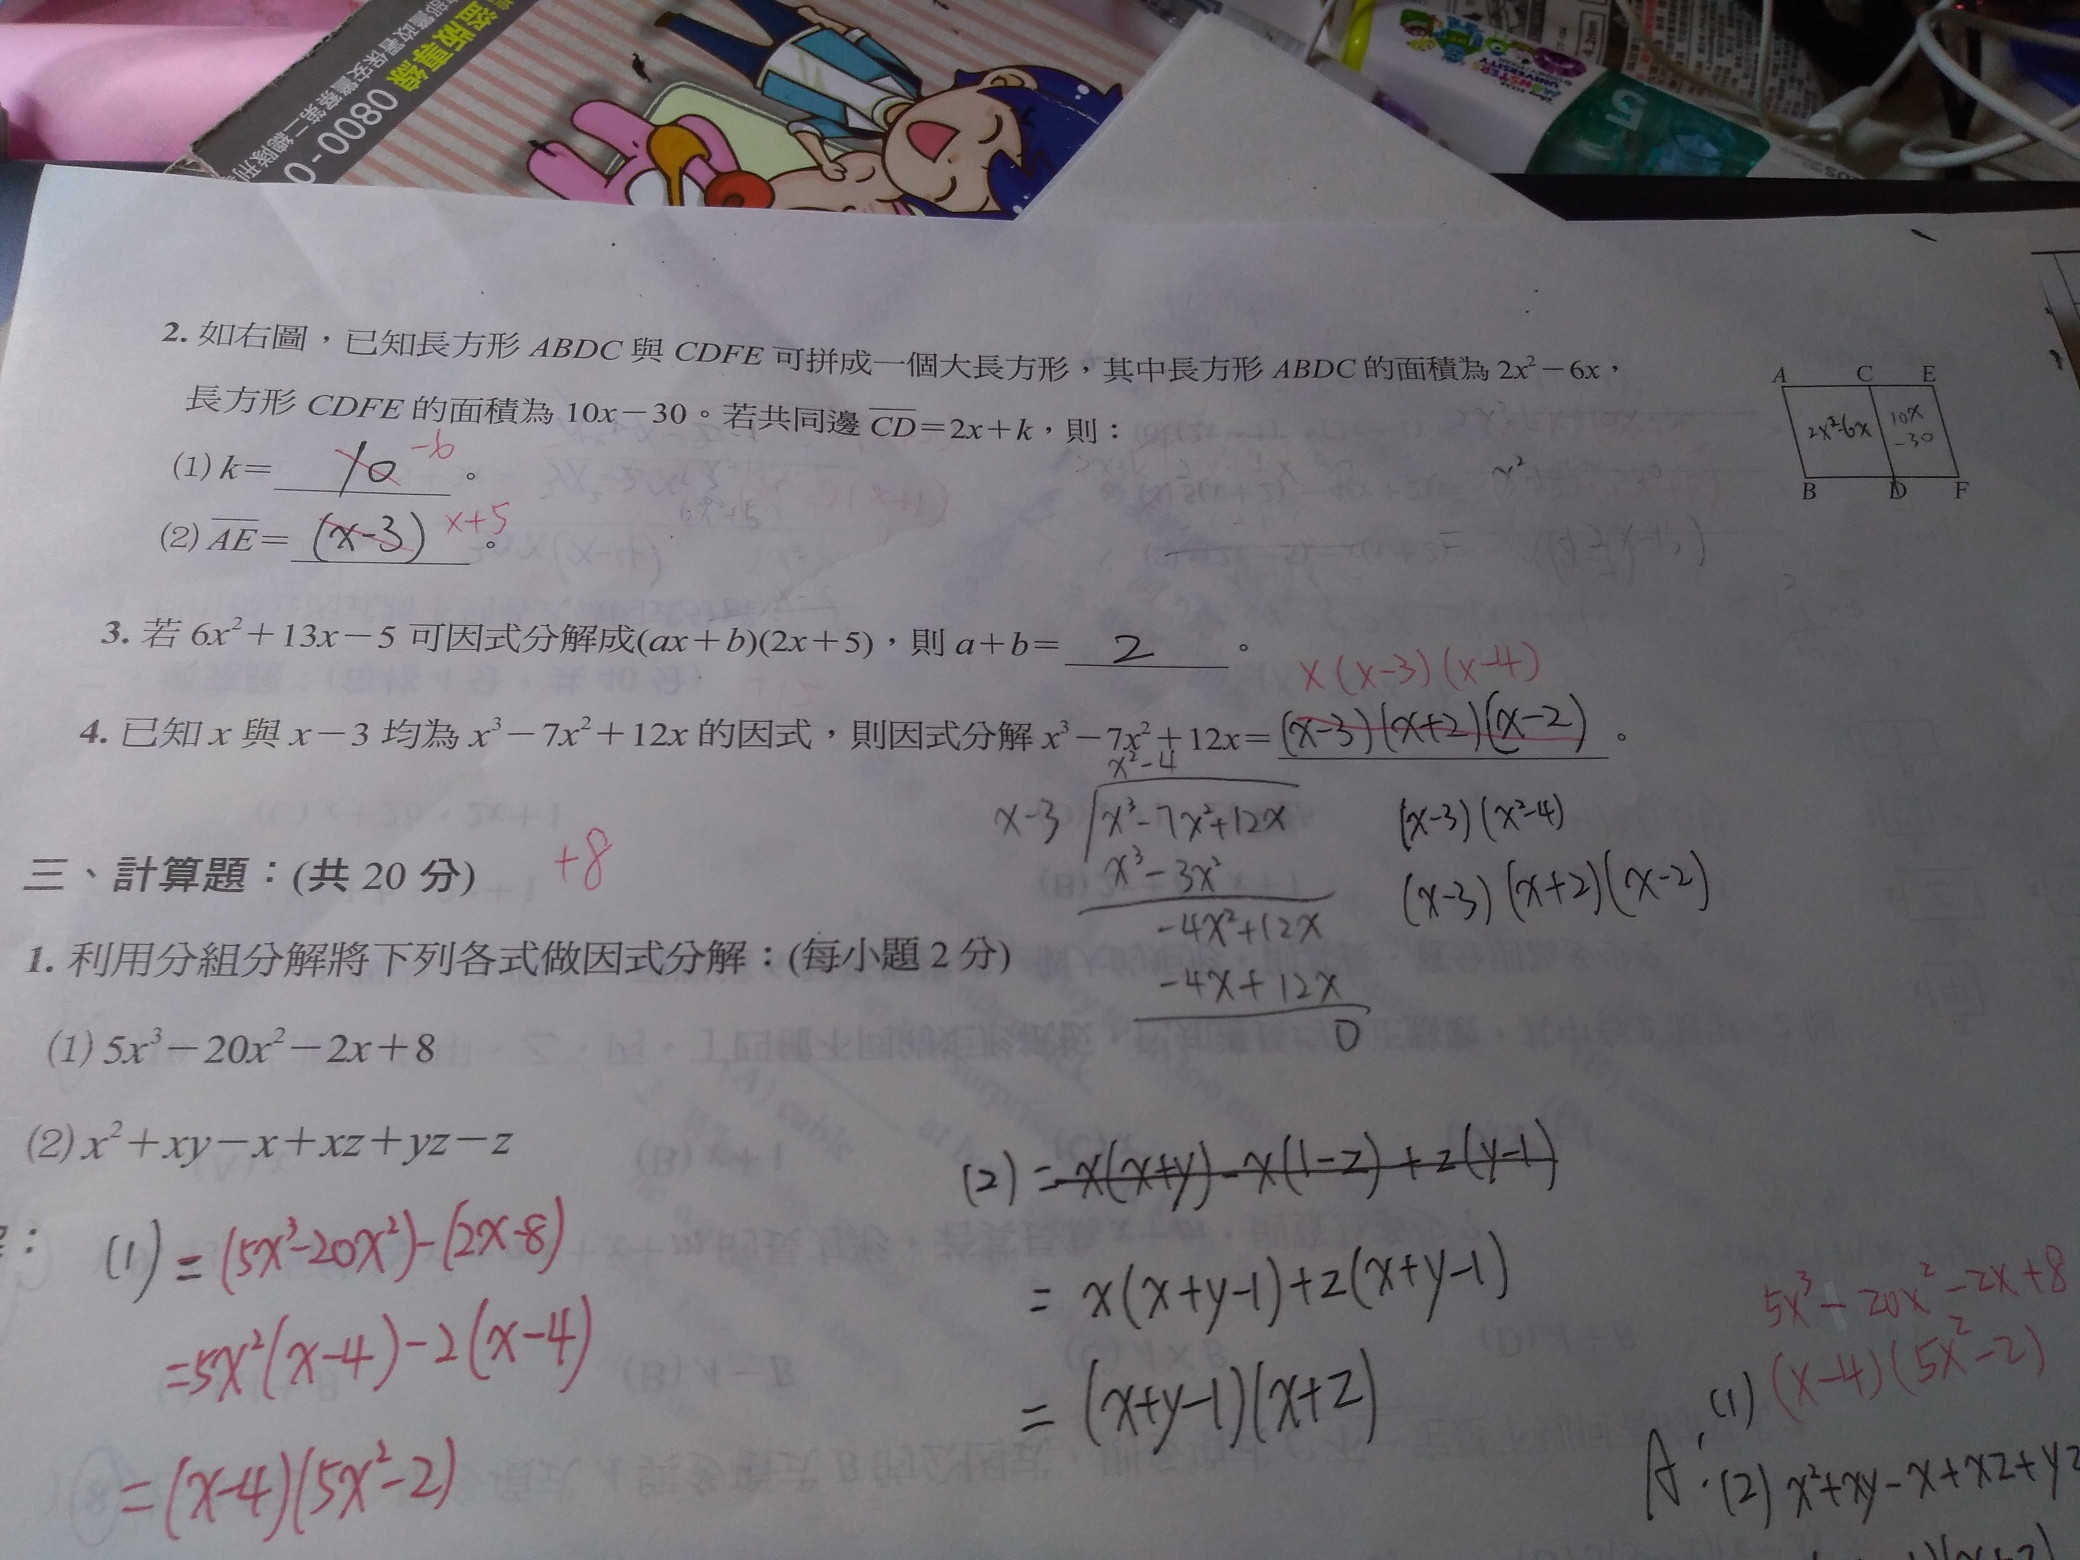 盜版專線
0800-0
警政署保安警察第二總隊刑
MONSTER
UNIVERSITY
2. 如右圖，已知長方形 ABDC 與 CDFE 可拼成一個大長方形，其中長方形 ABDC 的面積為 2x²－6x，
長方形 CDFE 的面積為 10x－30。若共同邊 CD＝2x＋k，則：
A C E
2x²-6x 10x
-30
B D F
(1) k＝ 10 -6 。
(2) AE＝ (x-3) x+5 。
3. 若 6x²＋13x－5 可因式分解成(ax＋b)(2x＋5)，則 a＋b＝ 2 。
x(x-3)(x-4)
4. 已知 x 與 x－3 均為 x³－7x²＋12x 的因式，則因式分解 x³－7x²＋12x＝ (x-3)(x+2)(x-2) 。
x²-4
x-3 x³-7x²+12x
x³-3x²
-4x²+12x
-4x+12x
0
(x-3)(x²-4)
(x-3)(x+2)(x-2)
三、計算題：(共 20 分) +8
1. 利用分組分解將下列各式做因式分解：(每小題 2 分)
(1) 5x³－20x²－2x＋8
(2) x²＋xy－x＋xz＋yz－z
(1) = (5x³-20x²)-(2x-8)
=5x²(x-4)-2(x-4)
=(x-4)(5x²-2)
(2) = x(x+y)-x(1-z)+z(y-1)
= x(x+y-1)+z(x+y-1)
= (x+y-1)(x+z)
5x³-20x²-2x+8
A: (1) (x-4)(5x²-2)
(2) x²+xy-x+xz+yz